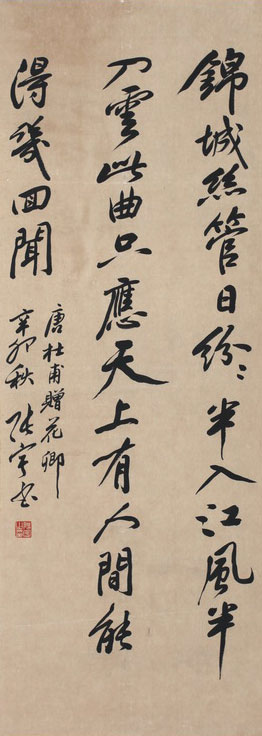 錦城絲管日紛〻半入江風半
入雲此曲只應天上有人間能
得幾回聞
唐杜甫贈花卿
辛卯秋張宇書